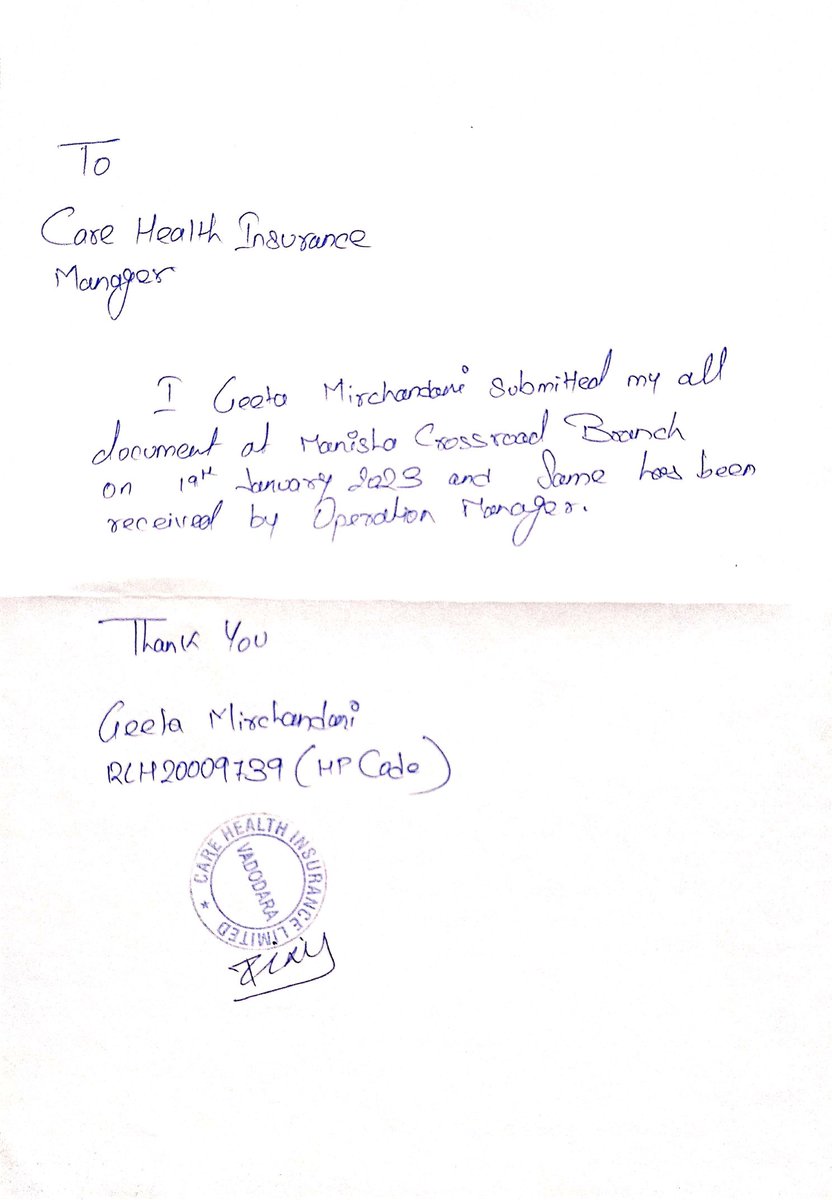 To
Care Health Insurance
Manager
I Geeta Mirchandani submitted my all
document at Manisha Crossroad Branch
on 19th January 2023 and Same has been
received by Operation Manager.
Thank You
Geeta Mirchandani
RCH20009739 (HP Code)
CARE HEALTH INSURANCE LIMITED
VADODARA